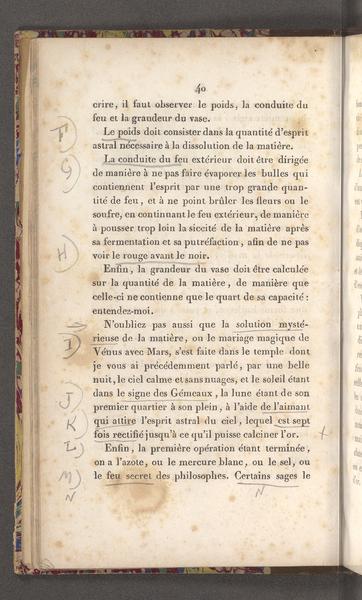 40
crire, il faut observer le poids, la conduite du
feu et la grandeur du vase.
F) Le poids doit consister dans la quantité d'esprit
astral nécessaire à la dissolution de la matière.
G) La conduite du feu extérieur doit être dirigée
de manière à ne pas faire évaporer les bulles qui
contiennent l'esprit par une trop grande quan-
tité de feu, et à ne point brûler les fleurs ou le
soufre, en continuant le feu extérieur, de manière
à pousser trop loin la siccité de la matière après
sa fermentation et sa putréfaction, afin de ne pas
H) voir le rouge avant le noir.
Enfin, la grandeur du vase doit être calculée
sur la quantité de la matière, de manière que
celle-ci ne contienne que le quart de sa capacité :
entendez-moi.
N'oubliez pas aussi que la solution mysté-
I) rieuse de la matière, ou le mariage magique de
Vénus avec Mars, s'est faite dans le temple dont
je vous ai précédemment parlé, par une belle
nuit, le ciel calme et sans nuages, et le soleil étant
J) dans le signe des Gémeaux, la lune étant de son
premier quartier à son plein, à l'aide de l'aimant
K) qui attire l'esprit astral du ciel, lequel est sept
L) fois rectifié jusqu'à ce qu'il puisse calciner l'or. +
Enfin, la première opération étant terminée,
on a l'azote, ou le mercure blanc, ou le sel, ou
M) le feu secret des philosophes. Certains sages le
N N